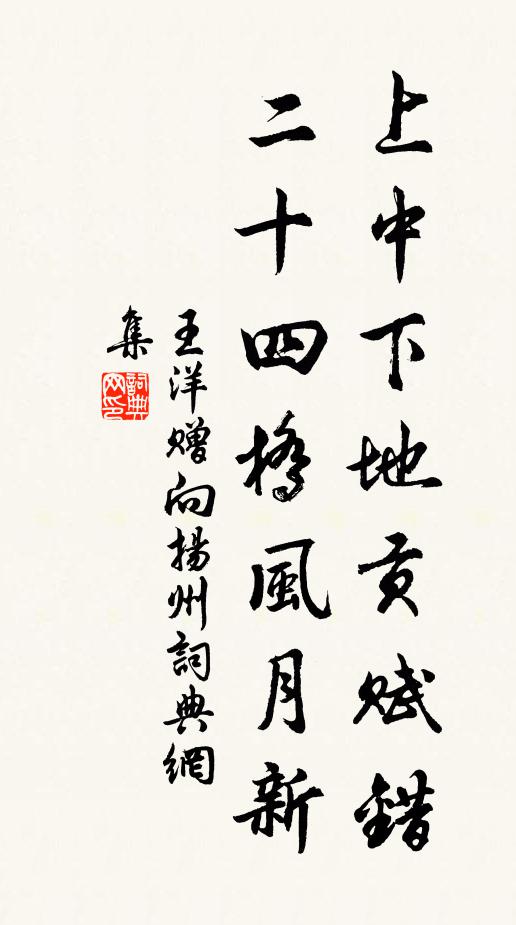 上中下地貢賦錯
二十四橋風月新
王洋贈向揚州詞典網
集
詞典
网印